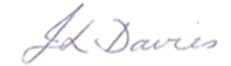 JL Davies